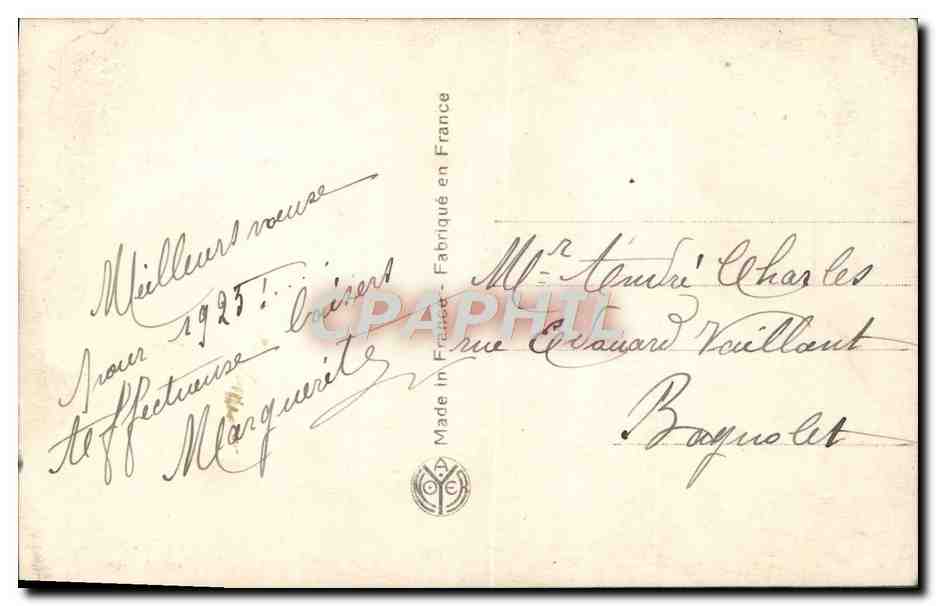 Meilleurs vœuse
pour 1925!...
Affectueuse baisers
Marguerite
Made in France - Fabriqué en France
A
NOYER
Mr André Charles
rue Edouard Vaillant
Bagnolet
CPAPHIL